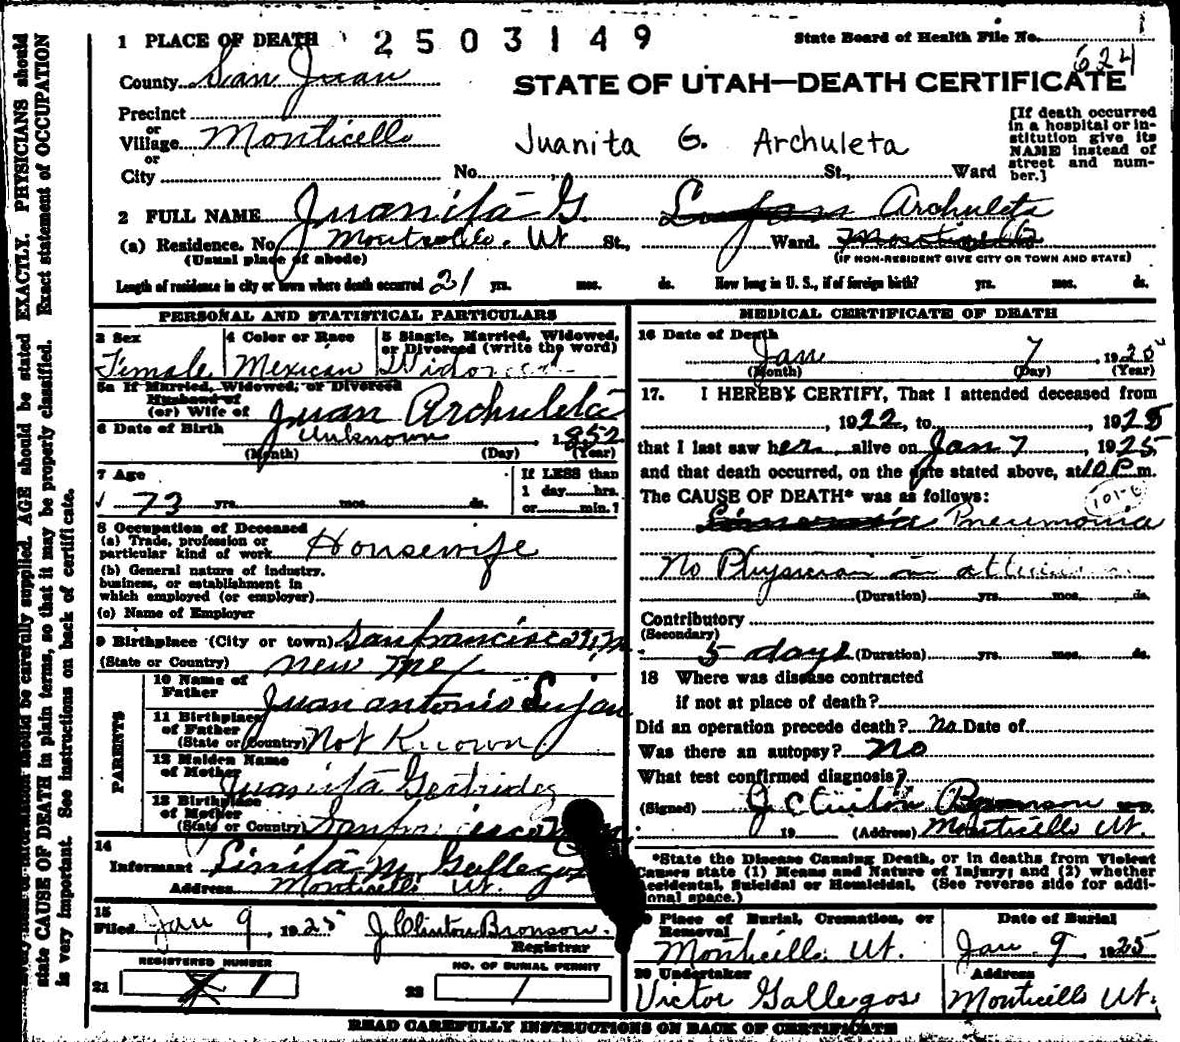 1 PLACE OF DEATH 2503149 State Board of Health File No.
624
County San Juan STATE OF UTAH—DEATH CERTIFICATE
Precinct
or
Village Monticello
or
City No. St., Ward
Juanita G. Archuleta
[If death occurred in a hospital or institution give its NAME instead of street and number.]
2 FULL NAME Juanita G. Archuleta
(a) Residence. No. Monticello. Ut St., Ward. Monticello
(Usual place of abode) (IF NON-RESIDENT GIVE CITY OR TOWN AND STATE)
Length of residence in city or town where death occurred 21 yrs. mos. ds. How long in U. S., if of foreign birth? yrs. mos. ds.
PERSONAL AND STATISTICAL PARTICULARS
3 Sex 4 Color or Race 5 Single, Married, Widowed, or Divorced (write the word)
Female Mexican Widowed
5a If Married, Widowed, or Divorced
Husband of
(or) Wife of Juan Archuleta
6 Date of Birth Unknown 1852
(Month) (Day) (Year)
7 Age If LESS than
73 yrs. mos. ds. 1 day hrs.
or min.?
8 Occupation of Deceased
(a) Trade, profession or
particular kind of work Housewife
(b) General nature of industry,
business, or establishment in
which employed (or employer)
(c) Name of Employer
9 Birthplace (City or town) San francisco N.M
(State or Country) New Mex
PARENTS
10 Name of
Father Juan antonio Lujan
11 Birthplace
of Father
(State or Country) Not Known
12 Maiden Name
of Mother Juanita Gertrides
13 Birthplace
of Mother
(State or Country) San francisco
14
Informant M. Gallegos
Address Monticello Ut.
15
Filed Jan 9, 1925 J. Clinton Bronson.
Registrar
REGISTERED NUMBER NO. OF BURIAL PERMIT
21 1 22 1
MEDICAL CERTIFICATE OF DEATH
16 Date of Death
Jan 7, 1925
(Month) (Day) (Year)
17. I HEREBY CERTIFY, That I attended deceased from
, 1922, to , 1925
that I last saw her alive on Jan 7, 1925
and that death occurred, on the date stated above, at 10 P.m.
The CAUSE OF DEATH* was as follows: 101-6
Pneumonia
No Physician in
(Duration) yrs. mos. ds.
Contributory
(Secondary)
5 days (Duration) yrs. mos. ds.
18 Where was disease contracted
if not at place of death?
Did an operation precede death? No Date of
Was there an autopsy? No
What test confirmed diagnosis?
(Signed) J Clinton Bronson M.D.
, 19 (Address) Monticello Ut.
*State the Disease Causing Death, or in deaths from Violent
Causes state (1) Means and Nature of Injury; and (2) whether
Accidental, Suicidal or Homicidal. (See reverse side for addi-
tional space.)
19 Place of Burial, Cremation, or Removal Date of Burial
Monticello Ut. Jan 9 1925
20 Undertaker Address
Victor Gallegos Monticello Ut.
READ CAREFULLY INSTRUCTIONS ON BACK OF CERTIFICATE
should be carefully supplied. AGE should be stated EXACTLY. PHYSICIANS should
state CAUSE OF DEATH in plain terms, so that it may be properly classified. Exact statement of OCCUPATION
is very important. See instructions on back of certificate.